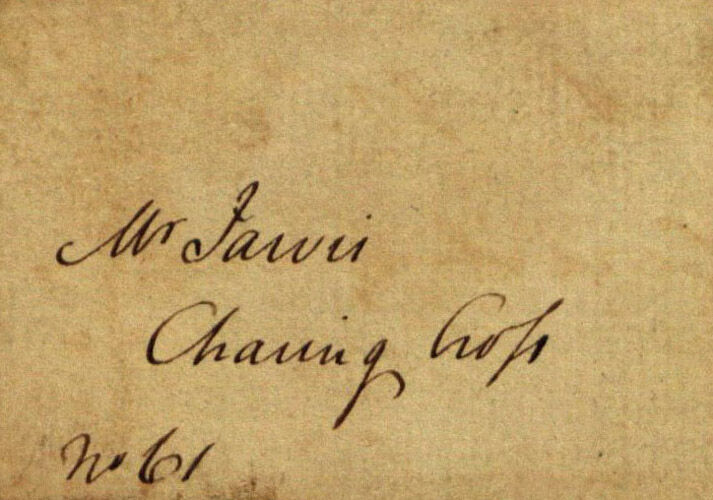 Mr Jarvis
Charing Cross
No 61